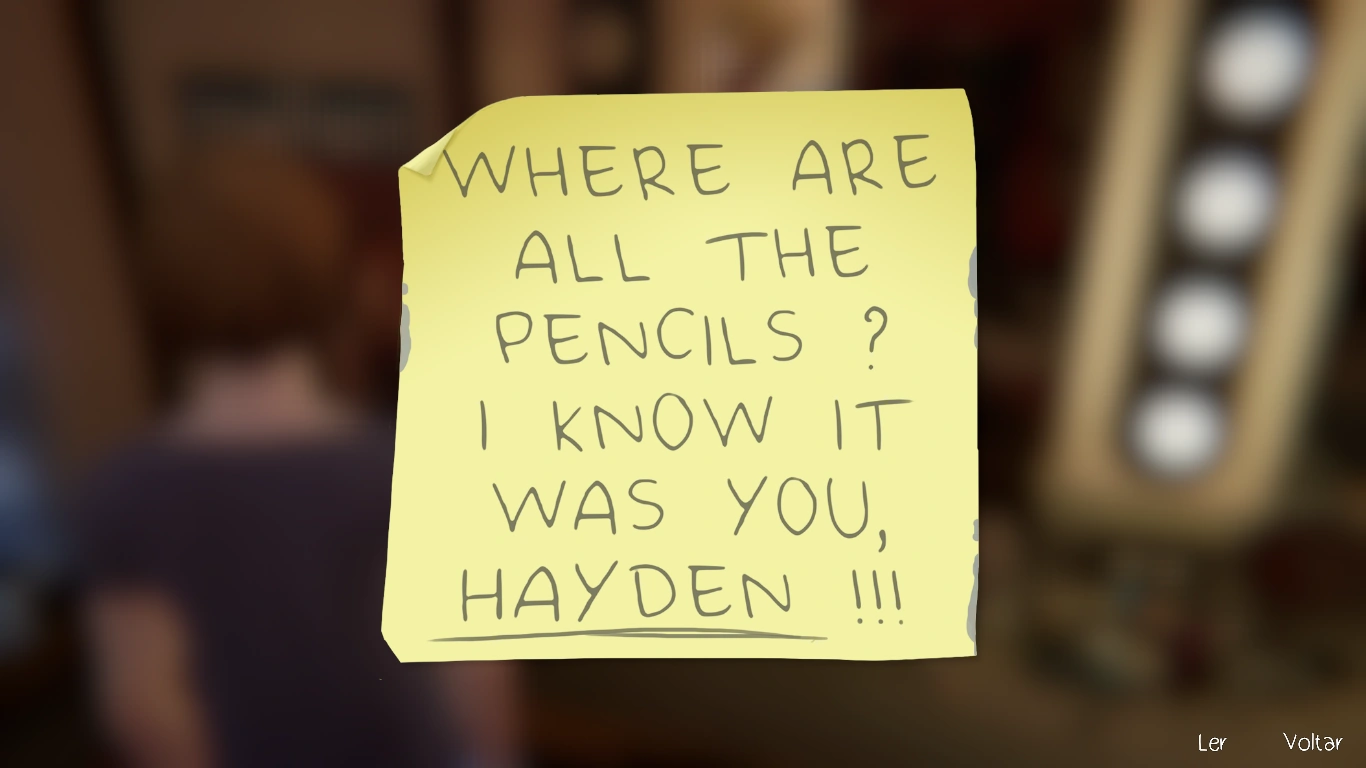 WHERE ARE
ALL THE
PENCILS ?
I KNOW IT
WAS YOU,
HAYDEN !!!
Ler Voltar